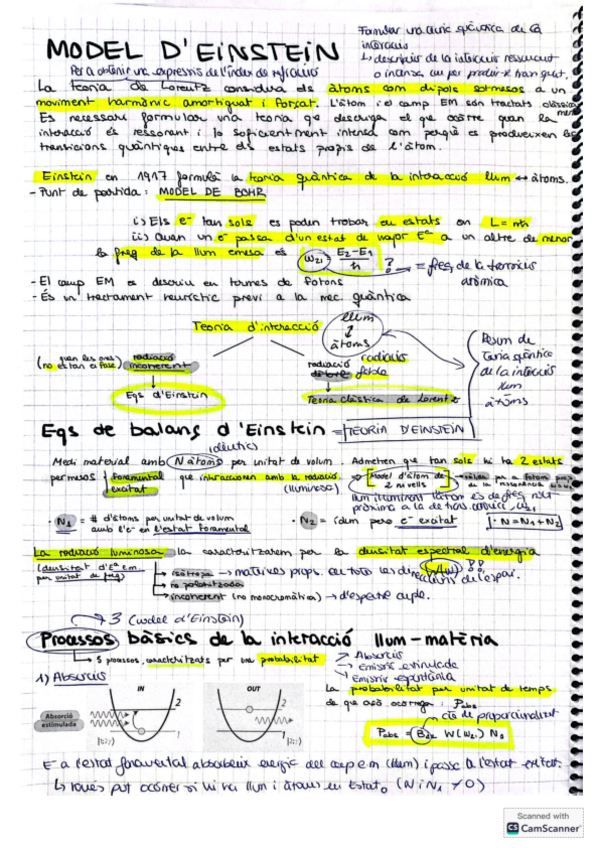 MODEL D'EINSTEIN
Per a obtenir una expressió de l'índex de refracció
Formular una teoria quàntica de la
interacció
↳ descripció de la interacció ressonant
o intensa com per produir-se tran quànt.
La teoria de Lorentz considera els àtoms com dipols sotmesos a un
moviment harmònic amortiguat i forçat. L'àtom i el camp EM són tractats clàssicament
És necessari formular una teoria que descrigui el que ocorre quan la
interacció és ressonant i lo suficientment intensa com perquè es produeixen les
transicions quàntiques entre els estats propis de l'àtom.
Einstein en 1917 formulà la teoria quàntica de la interacció llum ↔ àtoms.
- Punt de partida: MODEL DE BOHR
i) Els e⁻ tan sols es poden trobar en estats on L = nħ
ii) Quan un e⁻ passa d'un estat de major Eª a un altre de menor
la freq de la llum emesa és ω₂₁ = E₂-E₁ / ħ ? = freq de la transició
atòmica
- El camp EM es descriu en termes de fotons
- És un tractament heurístic previ a la mec. quàntica
Teoria d'interacció llum ↕ àtoms
(quan les ones no estan a fase) radiació incoherent
radiació feble
Eqs d'Einstein
Teoria Clàssica de Lorentz
Resum de
Teoria quàntica
de la interacció
llum
àtoms
Eqs de balanç d'Einstein = TEORIA D'EINSTEIN
idèntics
Medi material amb N àtoms per unitat de volum. Admetren que tan sols hi ha 2 estats
permesos fonamental excitat que interaccionen amb la radiació. (lluminosa)
Model d'àtom de 2 nivells
llum il·luminant l'àtom és de freq molt
pròxima a la de transició, ω₂₁
· N₁ = # d'àtoms per unitat de volum
amb l'e⁻ en l'estat fonamental
· N₂ = ídem pero e⁻ excitat
· N = N₁ + N₂
La radiació lluminosa la caracteritzarem per la densitat espectral d'energia
(densitat d'Eª em per unitat de freq)
W(ω) ??
→ isòtropa → mateixes props. en tots les direccions de l'espai.
→ no polaritzada
→ incoherent (no monocromàtica) → d'espectre ample.
3 (model d'Einstein)
Processos bàsics de la interacció llum-matèria
↳ 3 processos, caracteritzats per una probabilitat
→ Absorció
→ Emissió estimulada
→ Emissió espontània
1) Absorció
IN
OUT
2
2
1
1
Absorció
estimulada
La probabilitat per unitat de temps
de que açò ocorregui: Pabs
cte de proporcionalitat
Pabs = B₁₂ W(ω₂₁) N₁
E⁻ a l'estat fonamental absorbeix energia del camp em (llum) i passa a l'estat excitat.
↳ només pot ocórrer si hi ha llum i àtoms en estat
Scanned with
CS CamScanner